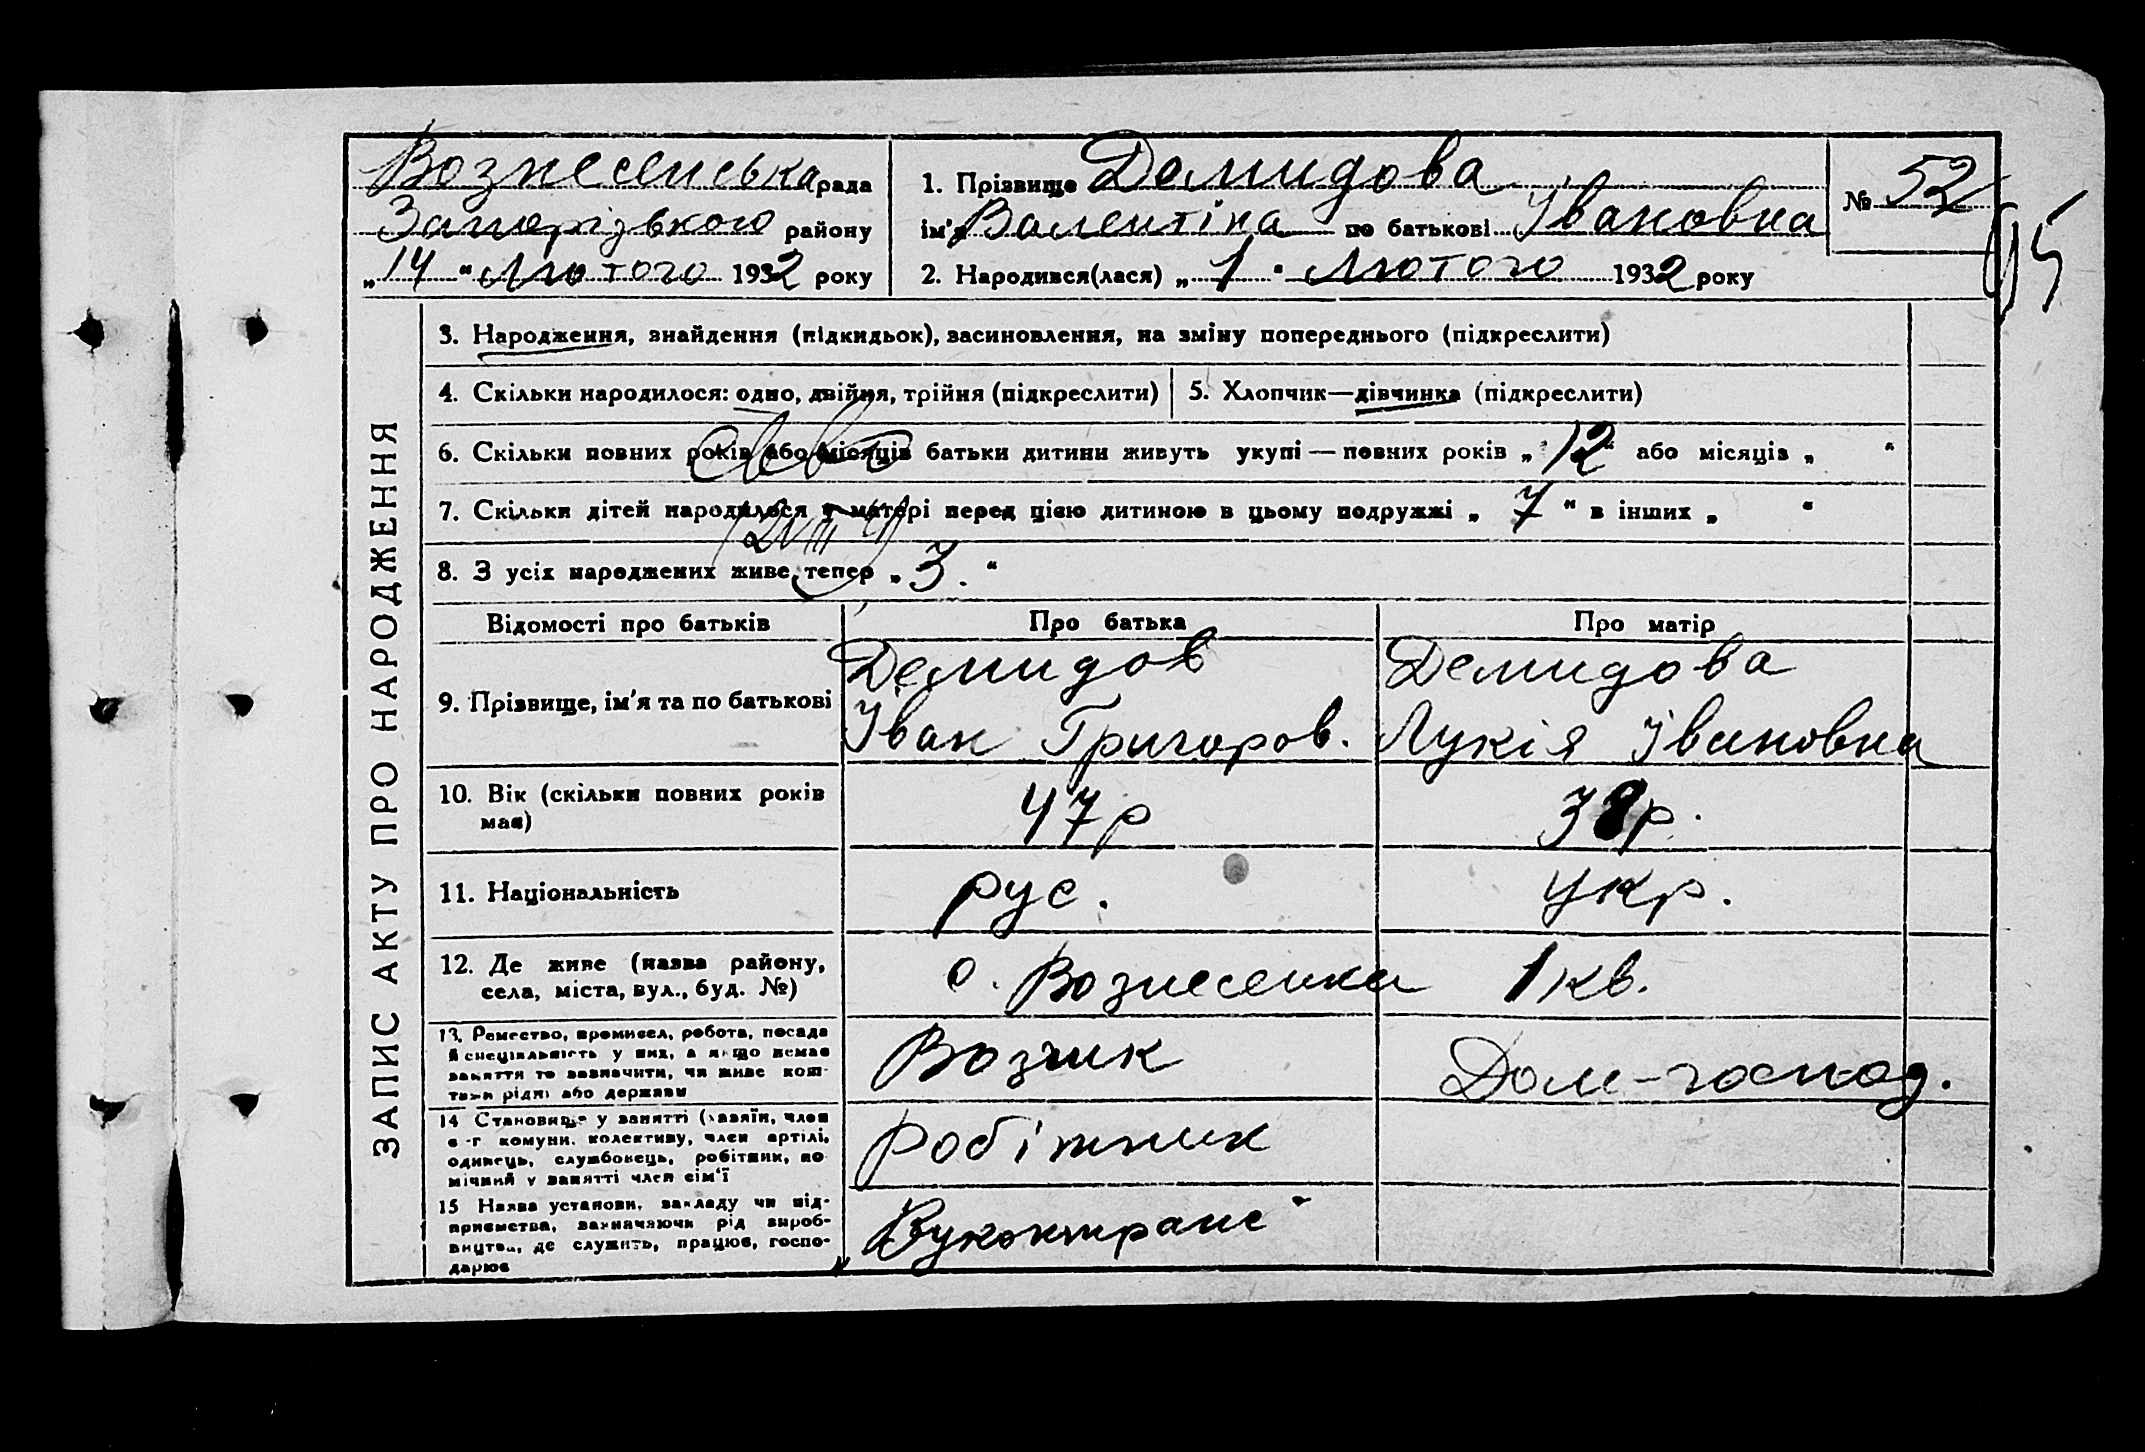 Вознесенська рада
Запорізького району
„14“ Лютого 1932 року
1. Прізвище Демидова
ім'я Валентіна по батькові Івановна
№ 52
95
2. Народився(лася) „1“ Лютого 1932 року
ЗАПИС АКТУ ПРО НАРОДЖЕННЯ
3. Народження, знайдення (підкидьок), засиновлення, на зміну попереднього (підкреслити)
4. Скільки народилося: одно, двійня, трійня (підкреслити)
5. Хлопчик—дівчинка (підкреслити)
6. Скільки повних років або місяців батьки дитини живуть укупі — повних років „12“ або місяців „ “
7. Скільки дітей народилося у матері перед цією дитиною в цьому подружжі „ 7 “ в інших „ “
8. З усіх народжених живе тепер „3.“
Відомості про батьків
Про батька
Про матір
9. Прізвище, ім'я та по батькові
Демидов
Іван Григоров.
Демидова
Лукія Івановна
10. Вік (скільки повних років
має)
47 р
38 р.
11. Національність
рус.
укр.
12. Де живе (назва району,
села, міста, вул., буд. №)
с. Вознесенка 1 кв.
13. Ремество, промисел, робота, посада
й спеціяльність у них, а якщо немає
заняття то зазначити, чи живе кош-
тами рідні або держави
Возчик
Дом-господ.
14 Становище у занятті (хазяїн, член
с-г комуни, колективу, член артілі,
одинець, службовець, робітник, по
мічний у занятті член сім'ї
Робітник
15 Назва установи, закладу чи під-
приємства, зазначаючи рід вироб-
ництва, де служить, працює, госпо-
дарює
Вукоктранс